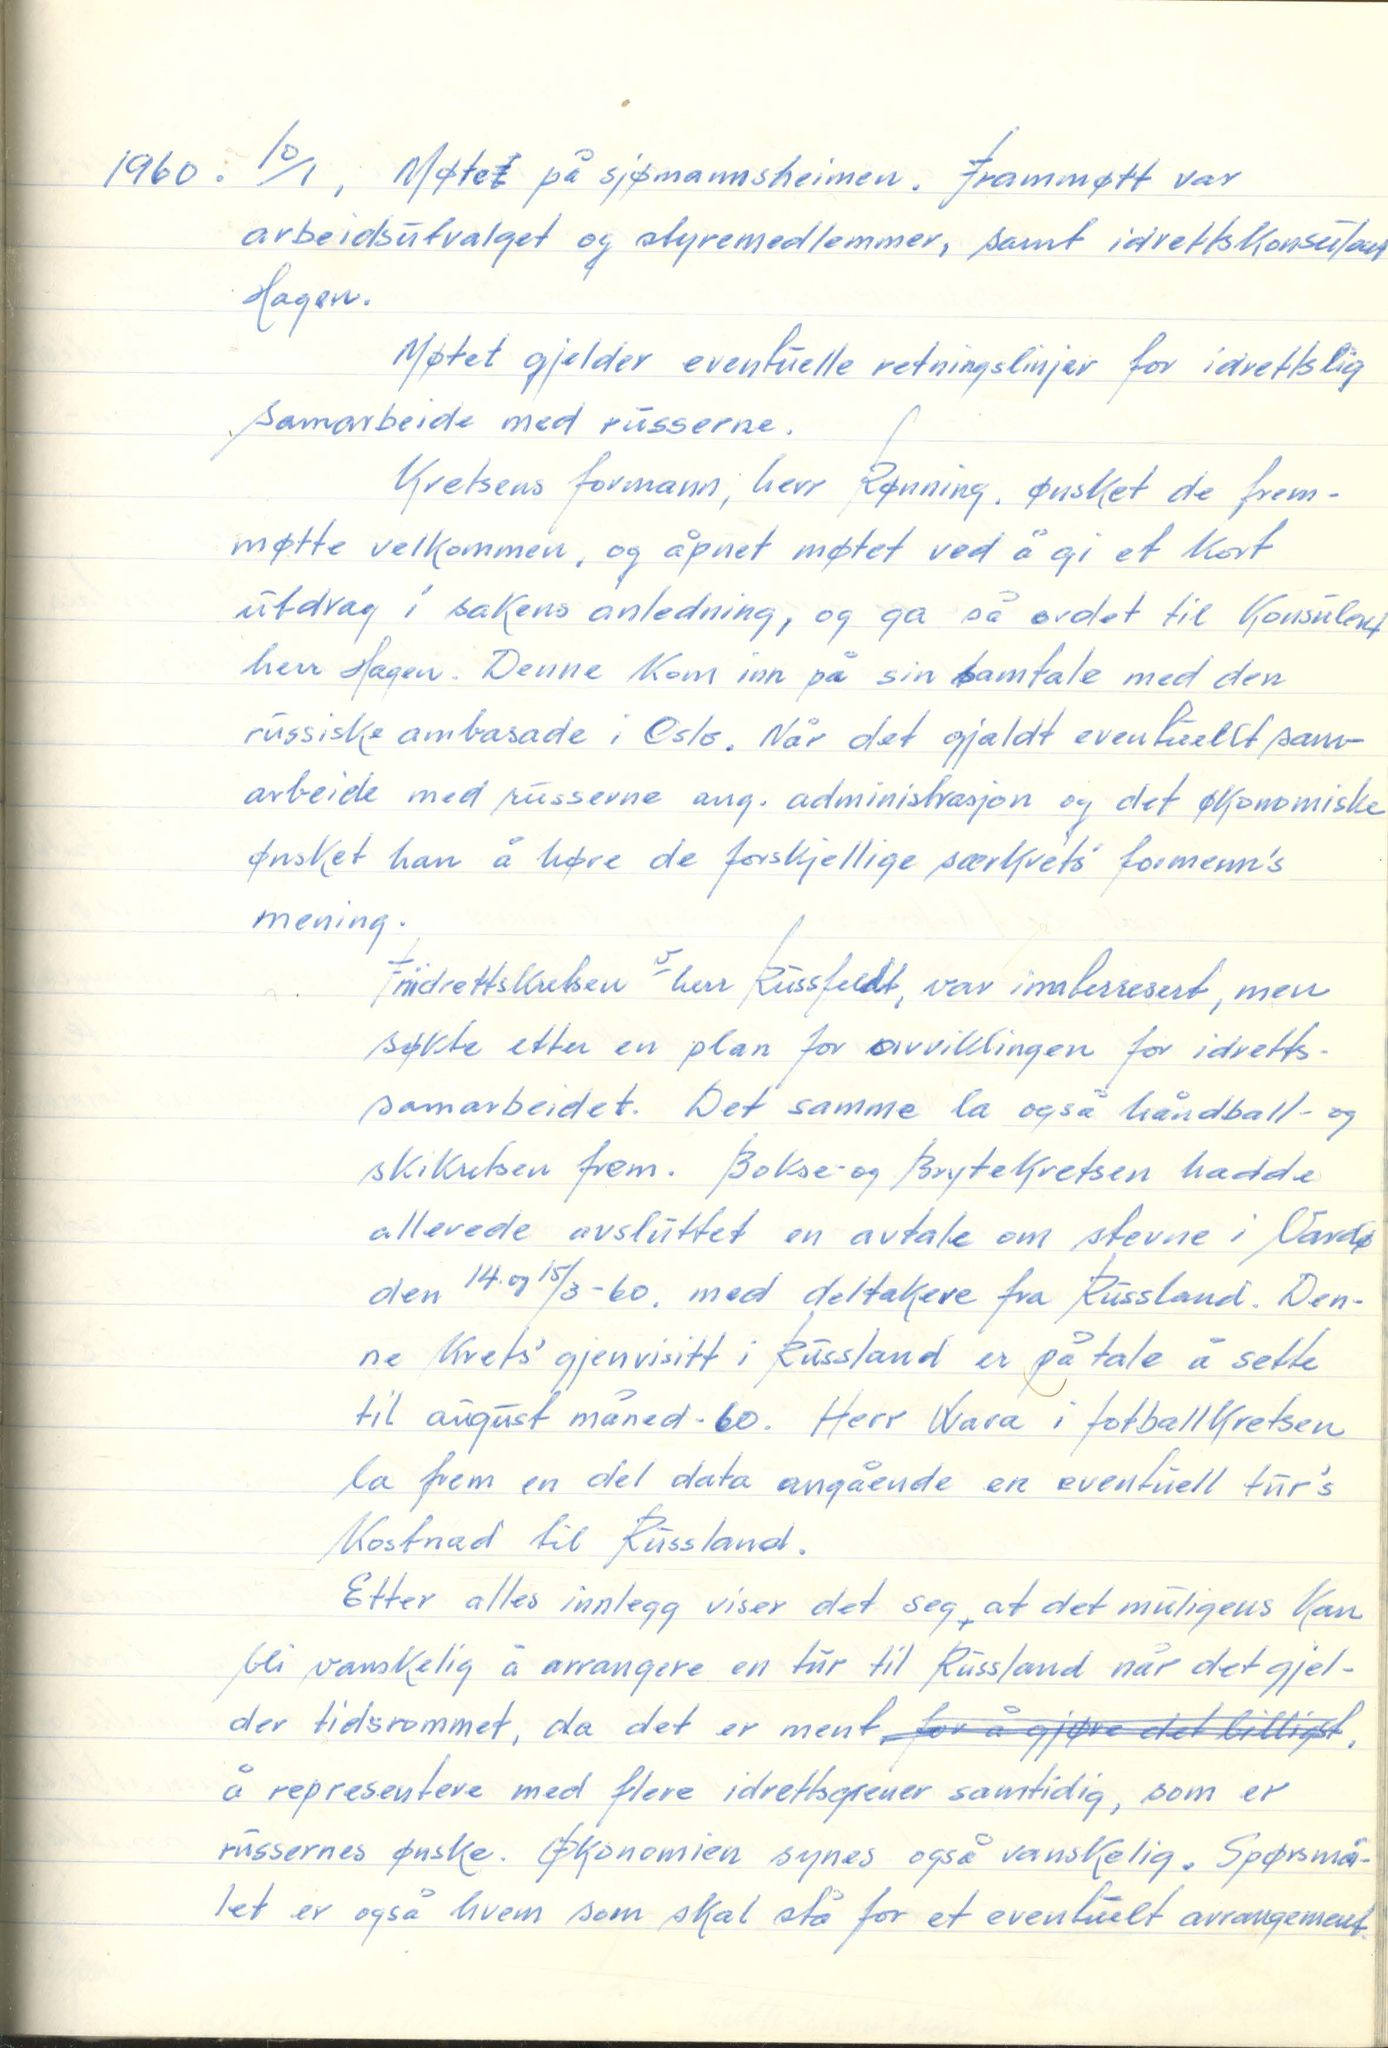 1960: 10/1, Møtet på sjømannsheimen. Frammøtt var
arbeidsutvalget og styremedlemmer, samt idrettskonsulent
Hagen.
Møtet gjelder eventuelle retningslinjer for idrettslig
samarbeide med russerne.
Kretsens formann, herr Rønning. ønsket de frem-
møtte velkommen, og åpnet møtet ved å gi et kort
utdrag i sakens anledning, og ga så ordet til konsulent
herr Hagen. Denne kom inn på sin samtale med den
russiske ambasade i Oslo. Når det gjaldt eventuellt sam-
arbeide med russerne ang. administrasjon og det økonomiske
ønsket han å høre de forskjellige særkrets' formenn's
mening.
Friidrettskretsen herr Russfeldt, var innterresert, men
søkte etter en plan for avviklingen for idretts-
samarbeidet. Det samme la også håndball- og
skikretsen frem. Bokse- og Brytekretsen hadde
allerede avsluttet en avtale om stevne i Vardø
den 14. og 15/3-60. med deltakere fra Russland. Den-
ne krets' gjenvisitt i Russland er på tale å sette
til august måned-60. Herr Wara i fotballkretsen
la frem en del data angående en eventuell tur's
kostnad til Russland.
Etter alles innlegg viser det seg, at det muligens kan
bli vanskelig å arrangere en tur til Russland når det gjel-
der tidsrommet, da det er ment for å gjøre det billigst,
å representere med flere idrettsgrener samtidig, som er
russernes ønske. Økonomien synes også vanskelig. Spørsmå-
let er også hvem som skal stå for et eventuelt arrangement.